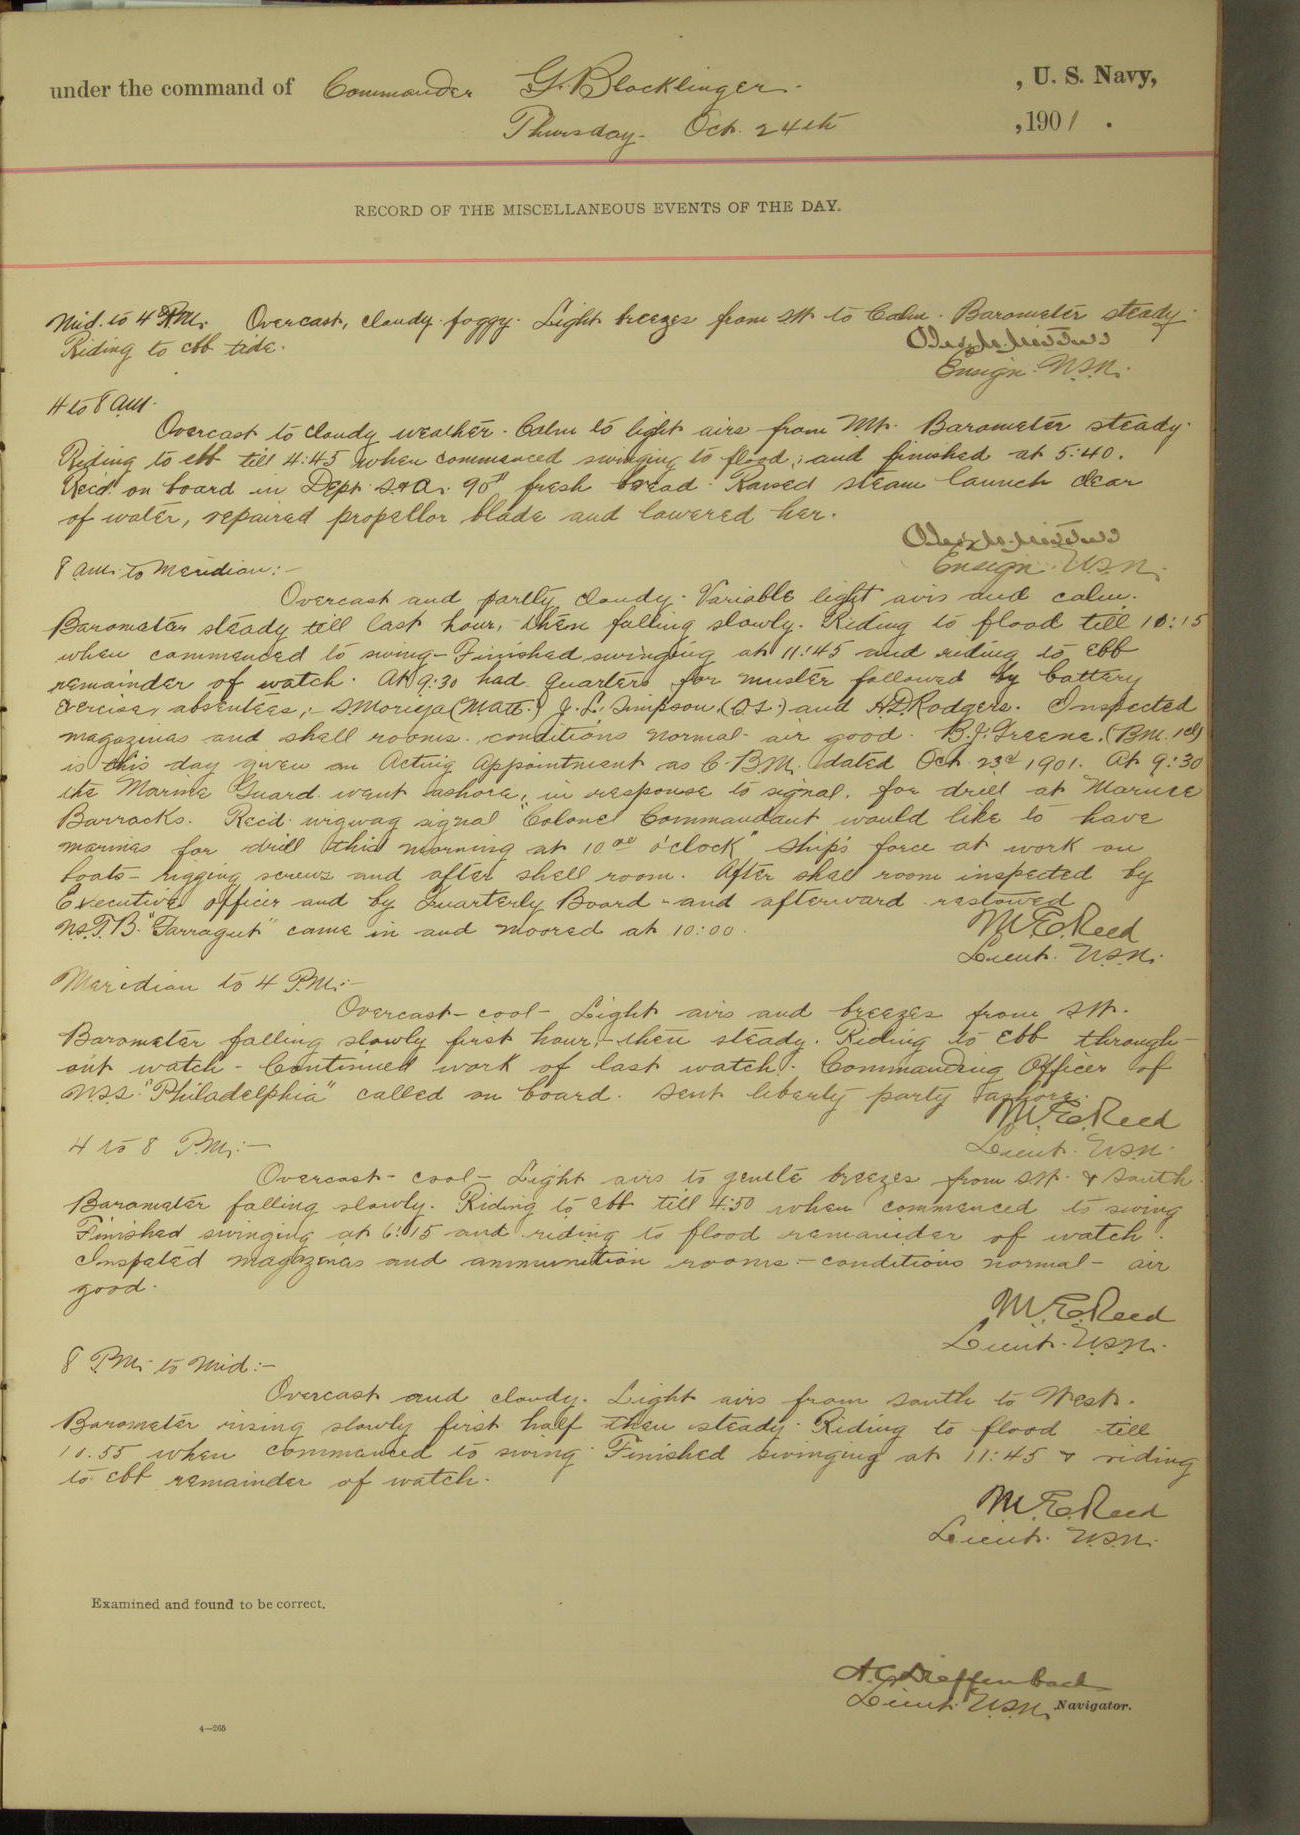 under the command of Commander G. Blocklinger. , U. S. Navy,
Thursday. Oct. 24th , 1901 .
RECORD OF THE MISCELLANEOUS EVENTS OF THE DAY.
Mid. to 4 A.M. Overcast, cloudy foggy. Light breezes from SW. to Calm. Barometer steady.
Riding to ebb tide.
Ensign. U.S.N.
4 to 8 a.m.
Overcast to cloudy weather. Calm to light airs from NW. Barometer steady.
Riding to ebb till 4:45 when commenced swinging to flood; and finished at 5:40.
Recd. on board in Dept. S.&A. 90# fresh bread. Raised steam launch clear
of water, repaired propellor blade and lowered her.
Ensign. U.S.N.
8 a.m. to Meridian:-
Overcast and partly cloudy. Variable light airs and calm.
Barometer steady till last hour, then falling slowly. Riding to flood till 10:15
when commenced to swing- Finished swinging at 11:45 and riding to ebb
remainder of watch. At 9:30 had quarters for muster followed by battery
exercise, absentees,- S. (Matt.) J.L. Simpson, (O.S.) and H.D. Rodgers. Inspected
magazines and shell rooms. conditions normal- air good. B.J. Greene. (B.M. 1cl)
is this day given an Acting Appointment as C.B.M. dated Oct. 23d 1901. At 9:30
the Marine Guard went ashore, in response to signal. for drill at Marine
Barracks. Recd. wigwag signal "Colonel Commandant would like to have
marines for drill this morning at 10 00 o'clock" Ship's force at work on
boats- rigging screws and after shell room. After shell room inspected by
Executive Officer and by Quarterly Board - and afterward restowed
U.S.T.B. "Farragut" came in and moored at 10:00.
M.E. Reed
Lieut. U.S.N.
Meridian to 4 P.M.:-
Overcast- cool- Light airs and breezes from SW.
Barometer falling slowly first hour,- then steady. Riding to ebb through-
out watch - Continued work of last watch. Commanding Officer of
U.S.S. "Philadelphia" called on board. Sent liberty party ashore.
M.E. Reed
Lieut. U.S.N.
4 to 8 P.M.:-
Overcast- cool- Light airs to gentle breezes from SW. & South.
Barometer falling slowly. Riding to ebb till 4:50 when commenced to swing
Finished swinging at 6:15 and riding to flood remainder of watch.
Inspected magazines and ammunition rooms - conditions normal- air
good.
M.E. Reed
Lieut. U.S.N.
8 P.M. to Mid:-
Overcast and cloudy. Light airs from South to West.
Barometer rising slowly first half then steady. Riding to flood till
10.55 when commenced to swing. Finished swinging at 11:45 & riding
to ebb remainder of watch.
M.E. Reed
Lieut. U.S.N.
Examined and found to be correct.
A.C. Dieffenbach
Lieut. U.S.N. Navigator.
4—265